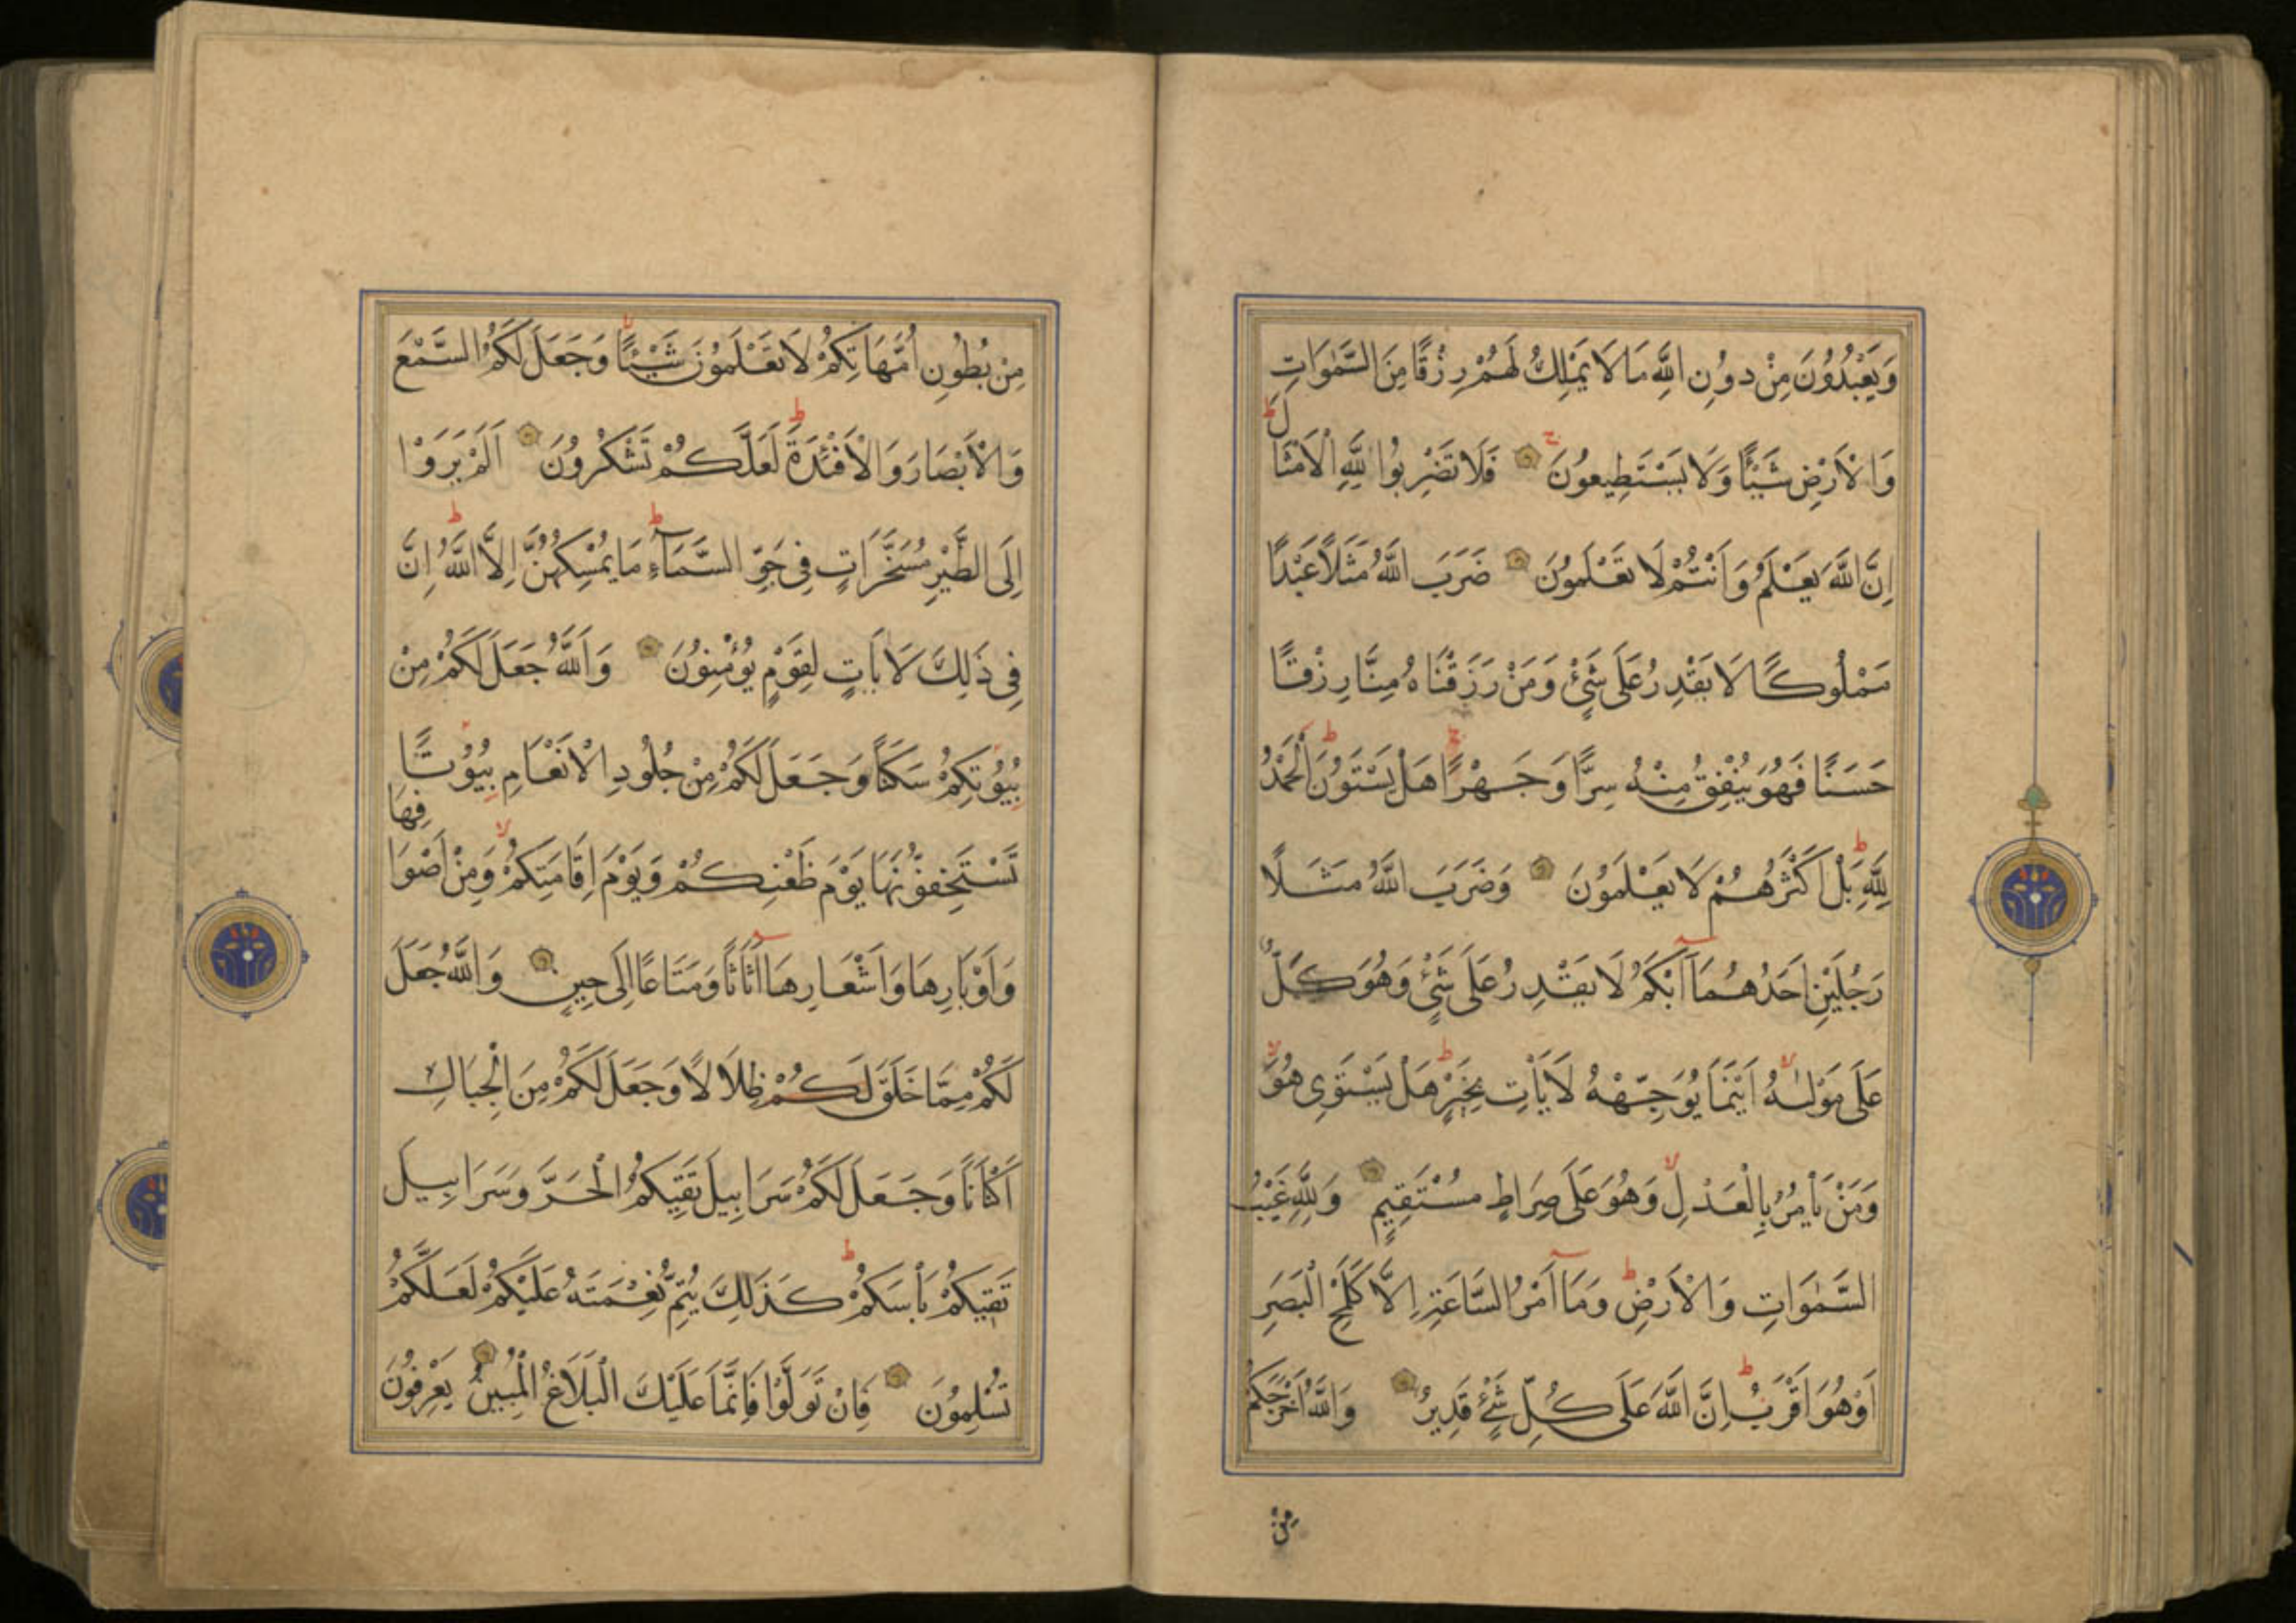 وَيَعْبُدُونَ مِنْ دُونِ اللَّهِ مَا لَا يَمْلِكُ لَهُمْ رِزْقًا مِنَ السَّمٰوَاتِ
وَالْاَرْضِ شَيْئًا وَلَا يَسْتَطِيعُونَ فَلَا تَضْرِبُوا لِلَّهِ الْاَمْثَالَ
اِنَّ اللَّهَ يَعْلَمُ وَاَنْتُمْ لَا تَعْلَمُونَ ضَرَبَ اللَّهُ مَثَلًا عَبْدًا
مَمْلُوكًا لَا يَقْدِرُ عَلَى شَيْءٍ وَمَنْ رَزَقْنَاهُ مِنَّا رِزْقًا
حَسَنًا فَهُوَ يُنْفِقُ مِنْهُ سِرًّا وَجَهْرًا هَلْ يَسْتَوُونَ اَلْحَمْدُ
لِلَّهِ بَلْ اَكْثَرُهُمْ لَا يَعْلَمُونَ وَضَرَبَ اللَّهُ مَثَلًا
رَجُلَيْنِ اَحَدُهُمَا اَبْكَمُ لَا يَقْدِرُ عَلَى شَيْءٍ وَهُوَ كَلٌّ
عَلَى مَوْلٰيهُ اَيْنَمَا يُوَجِّهْهُ لَا يَأْتِ بِخَيْرٍ هَلْ يَسْتَوِى هُوَ
وَمَنْ يَأْمُرُ بِالْعَدْلِ وَهُوَ عَلَى صِرَاطٍ مُسْتَقِيمٍ وَلِلَّهِ غَيْبُ
السَّمٰوَاتِ وَالْاَرْضِ وَمَا اَمْرُ السَّاعَةِ اِلَّا كَلَمْحِ الْبَصَرِ
اَوْ هُوَ اَقْرَبُ اِنَّ اللَّهَ عَلَى كُلِّ شَيْءٍ قَدِيرٌ وَاللَّهُ اَخْرَجَكُمْ
مِنْ
مِنْ بُطُونِ اُمَّهَاتِكُمْ لَا تَعْلَمُونَ شَيْئًا وَجَعَلَ لَكُمُ السَّمْعَ
وَالْاَبْصَارَ وَالْاَفْئِدَةَ لَعَلَّكُمْ تَشْكُرُونَ اَلَمْ يَرَوْا
اِلَى الطَّيْرِ مُسَخَّرَاتٍ فِى جَوِّ السَّمَاءِ مَا يُمْسِكُهُنَّ اِلَّا اللَّهُ اِنَّ
فِى ذَلِكَ لَاٰيَاتٍ لِقَوْمٍ يُؤْمِنُونَ وَاللَّهُ جَعَلَ لَكُمْ مِنْ
بُيُوتِكُمْ سَكَنًا وَجَعَلَ لَكُمْ مِنْ جُلُودِ الْاَنْعَامِ بُيُوتًا
تَسْتَخِفُّونَهَا يَوْمَ ظَعْنِكُمْ وَيَوْمَ اِقَامَتِكُمْ وَمِنْ اَصْوَافِهَا
وَاَوْبَارِهَا وَاَشْعَارِهَا اَثَاثًا وَمَتَاعًا اِلَى حِينٍ وَاللَّهُ جَعَلَ
لَكُمْ مِمَّا خَلَقَ لَكُمْ ظِلَالًا وَجَعَلَ لَكُمْ مِنَ الْجِبَالِ
اَكْنَانًا وَجَعَلَ لَكُمْ سَرَابِيلَ تَقِيكُمُ الْحَرَّ وَسَرَابِيلَ
تَقِيكُمْ بَأْسَكُمْ كَذَلِكَ يُتِمُّ نِعْمَتَهُ عَلَيْكُمْ لَعَلَّكُمْ
تُسْلِمُونَ فَاِنْ تَوَلَّوْا فَاِنَّمَا عَلَيْكَ الْبَلَاغُ الْمُبِينُ يَعْرِفُونَ